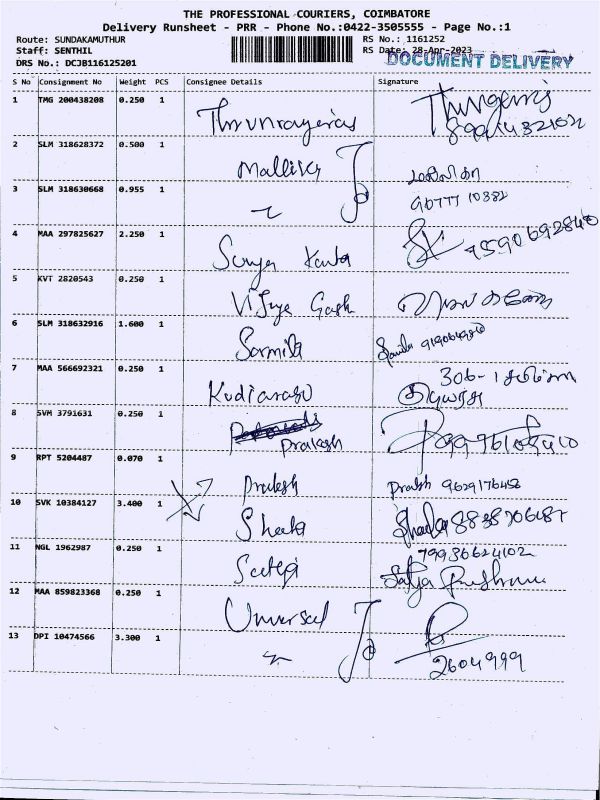 THE PROFESSIONAL COURIERS, COIMBATORE
Delivery Runsheet - PRR - Phone No.:0422-3505555 - Page No.:1
Route: SUNDAKAMUTHUR RS No.: 1161252
Staff: SENTHIL RS Date: 28-Apr-2023
DRS No.: DCJB116125201 DOCUMENT DELIVERY
S No Consignment No Weight PCS Consignee Details Signature
1 TMG 200438208 0.250 1
2 SLM 318628372 0.500 1 Mallika மல்லிகா
3 SLM 318630668 0.955 1 97777 10382
4 MAA 297825627 2.250 1 Surya Kanta 7590692840
5 KVT 2820543 0.250 1 Vijaya
6 SLM 318632916 1.600 1 Sarmila
7 MAA 566692321 0.250 1 Kudiarasu
8 SVM 3791631 0.250 1 Prakash
9 RPT 5204487 0.070 1 Prakash Prabh 9629176458
10 SVK 10384127 3.400 1 8838706487
11 NGL 1962987 0.250 1 79936624102 Satya
12 MAA 859823368 0.250 1 Unversal
13 DPI 10474566 3.300 1 2604999